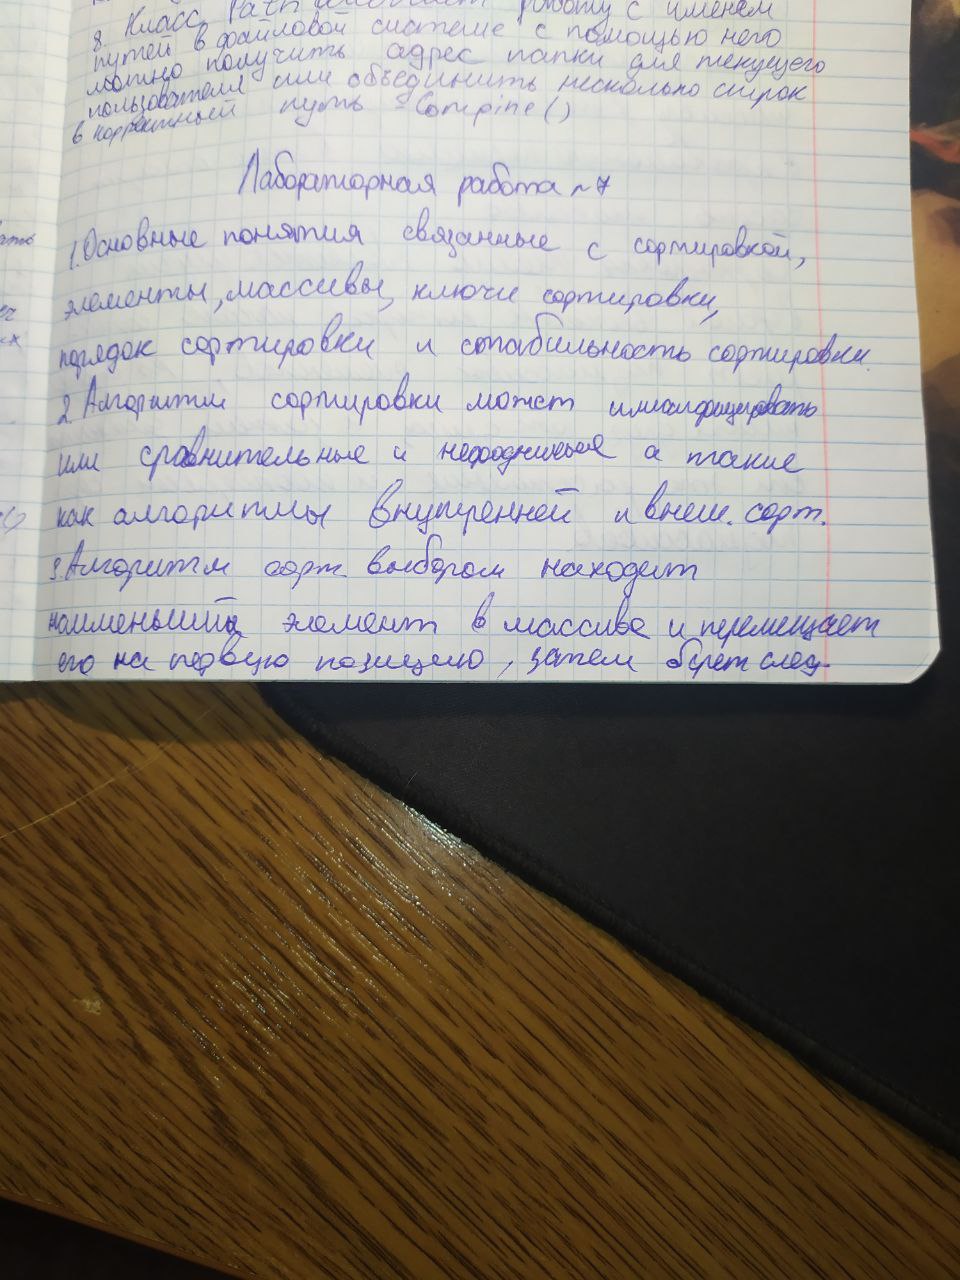 8. Класс Path работу с именем
путей в файловой системе с помощью него
можно получить адрес папки для текущего
пользователя или объединить несколько строк
в корректный путь Compine()
Лабораторная работа n 7
1. Основные понятия связанные с сортировкой,
элементы, массивы, ключи сортировки,
порядок сортировки и стабильность сортировки.
2. Алгоритм сортировки может
или сравнительные и а такие
как алгоритмы внутренней и внеш. сорт.
3. Алгоритм сорт. выбором находит
наименьший элемент в массиве и перемещает
его на первую позицию, затем берет след-